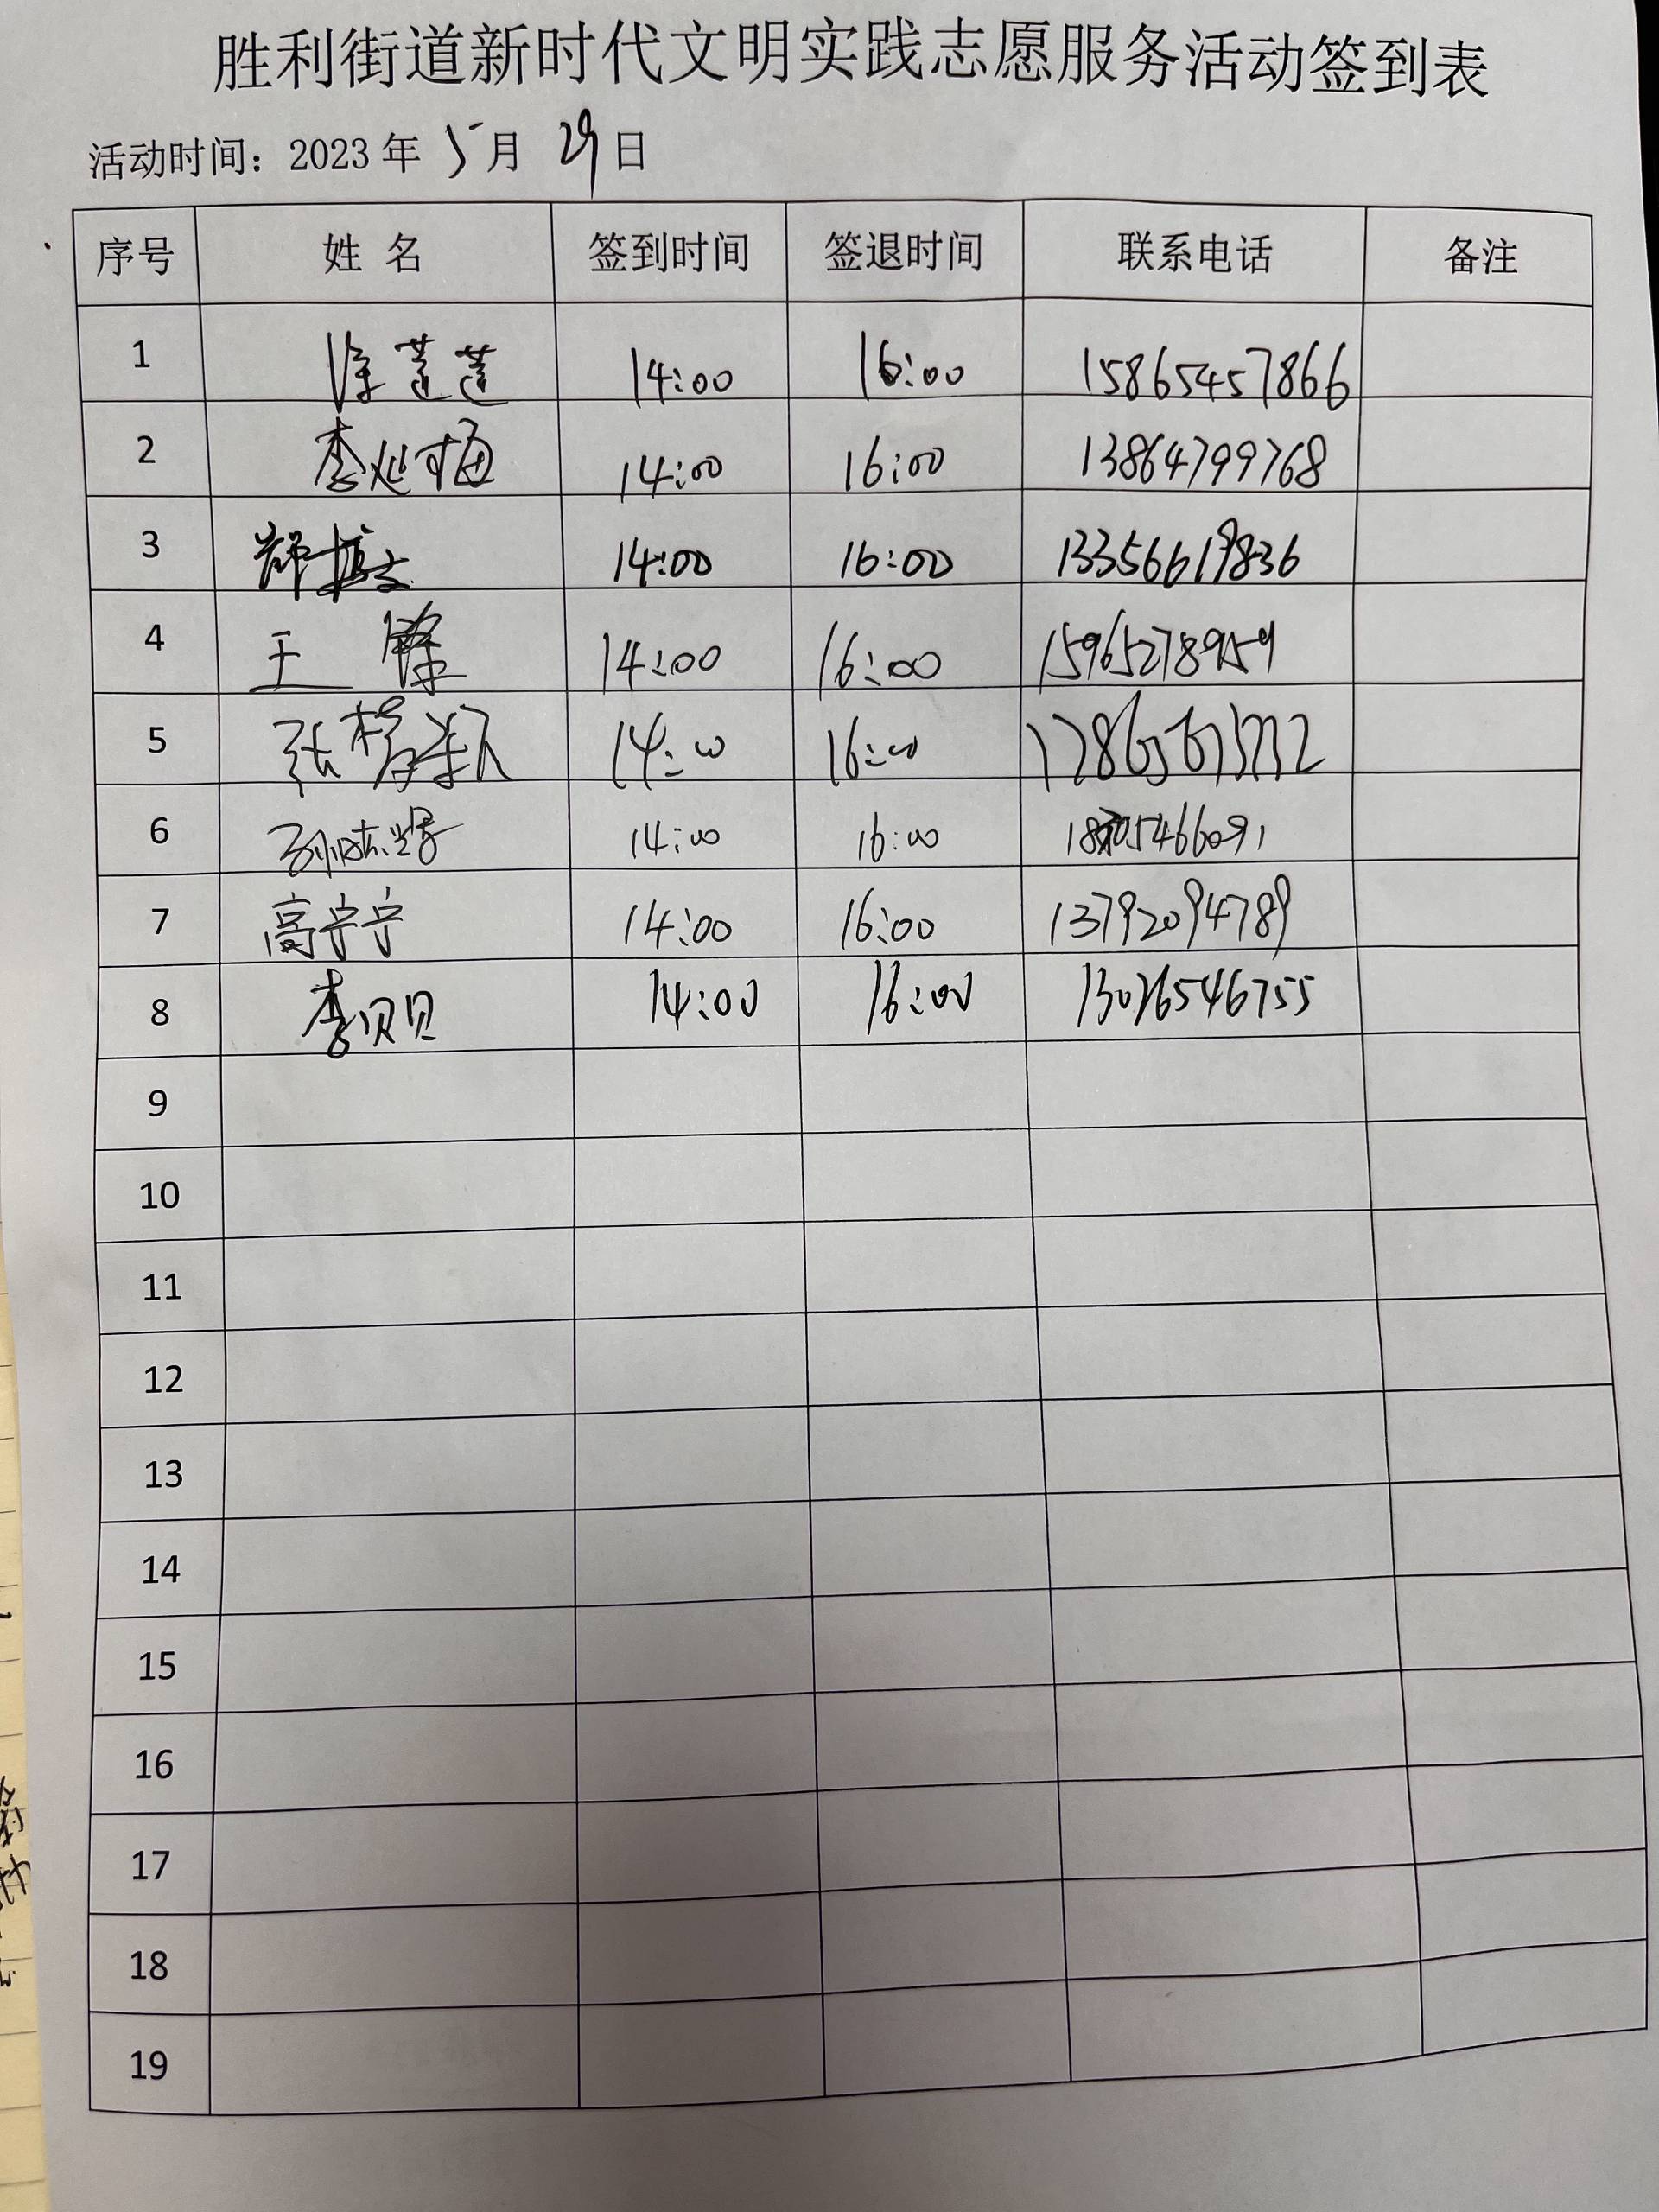 胜利街道新时代文明实践志愿服务活动签到表
活动时间：2023 年 5 月 29 日
序号 姓 名 签到时间 签退时间 联系电话 备注
1 徐莲莲 14:00 16:00 15865457866
2 李延梅 14:00 16:00 13864799768
3 14:00 16:00 13356619836
4 王 14:00 16:00 15965278959
5 张 14:00 16:00
6 孙 14:00 16:00
7 高宁宁 14:00 16:00 13792094789
8 李贝贝 14:00 16:00 13026546755
9
10
11
12
13
14
15
16
17
18
19